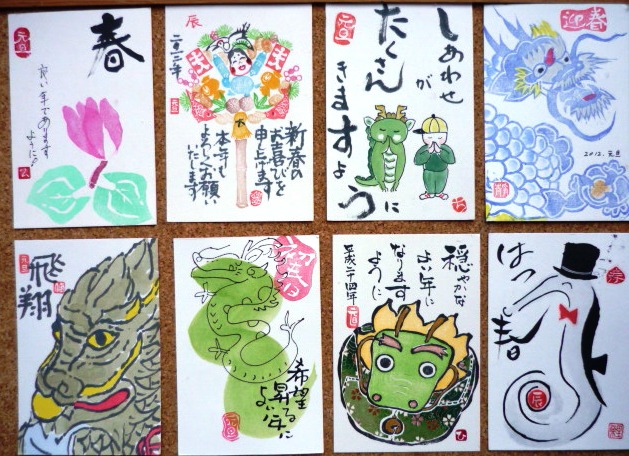 元旦
春
良い年であります
ように。
辰
二〇一二年
元旦
新春の
お喜びを
申し上げます
本年も
よろしくお願い
いたします
元旦
しあわせ
が
たくさん
きますように
迎春
2012.元旦
元旦
飛翔
希望
昇る
よい年に
元旦
穏やかな
よい年に
なります
ように
平成二十四年
元旦
ひ
はつ春
辰